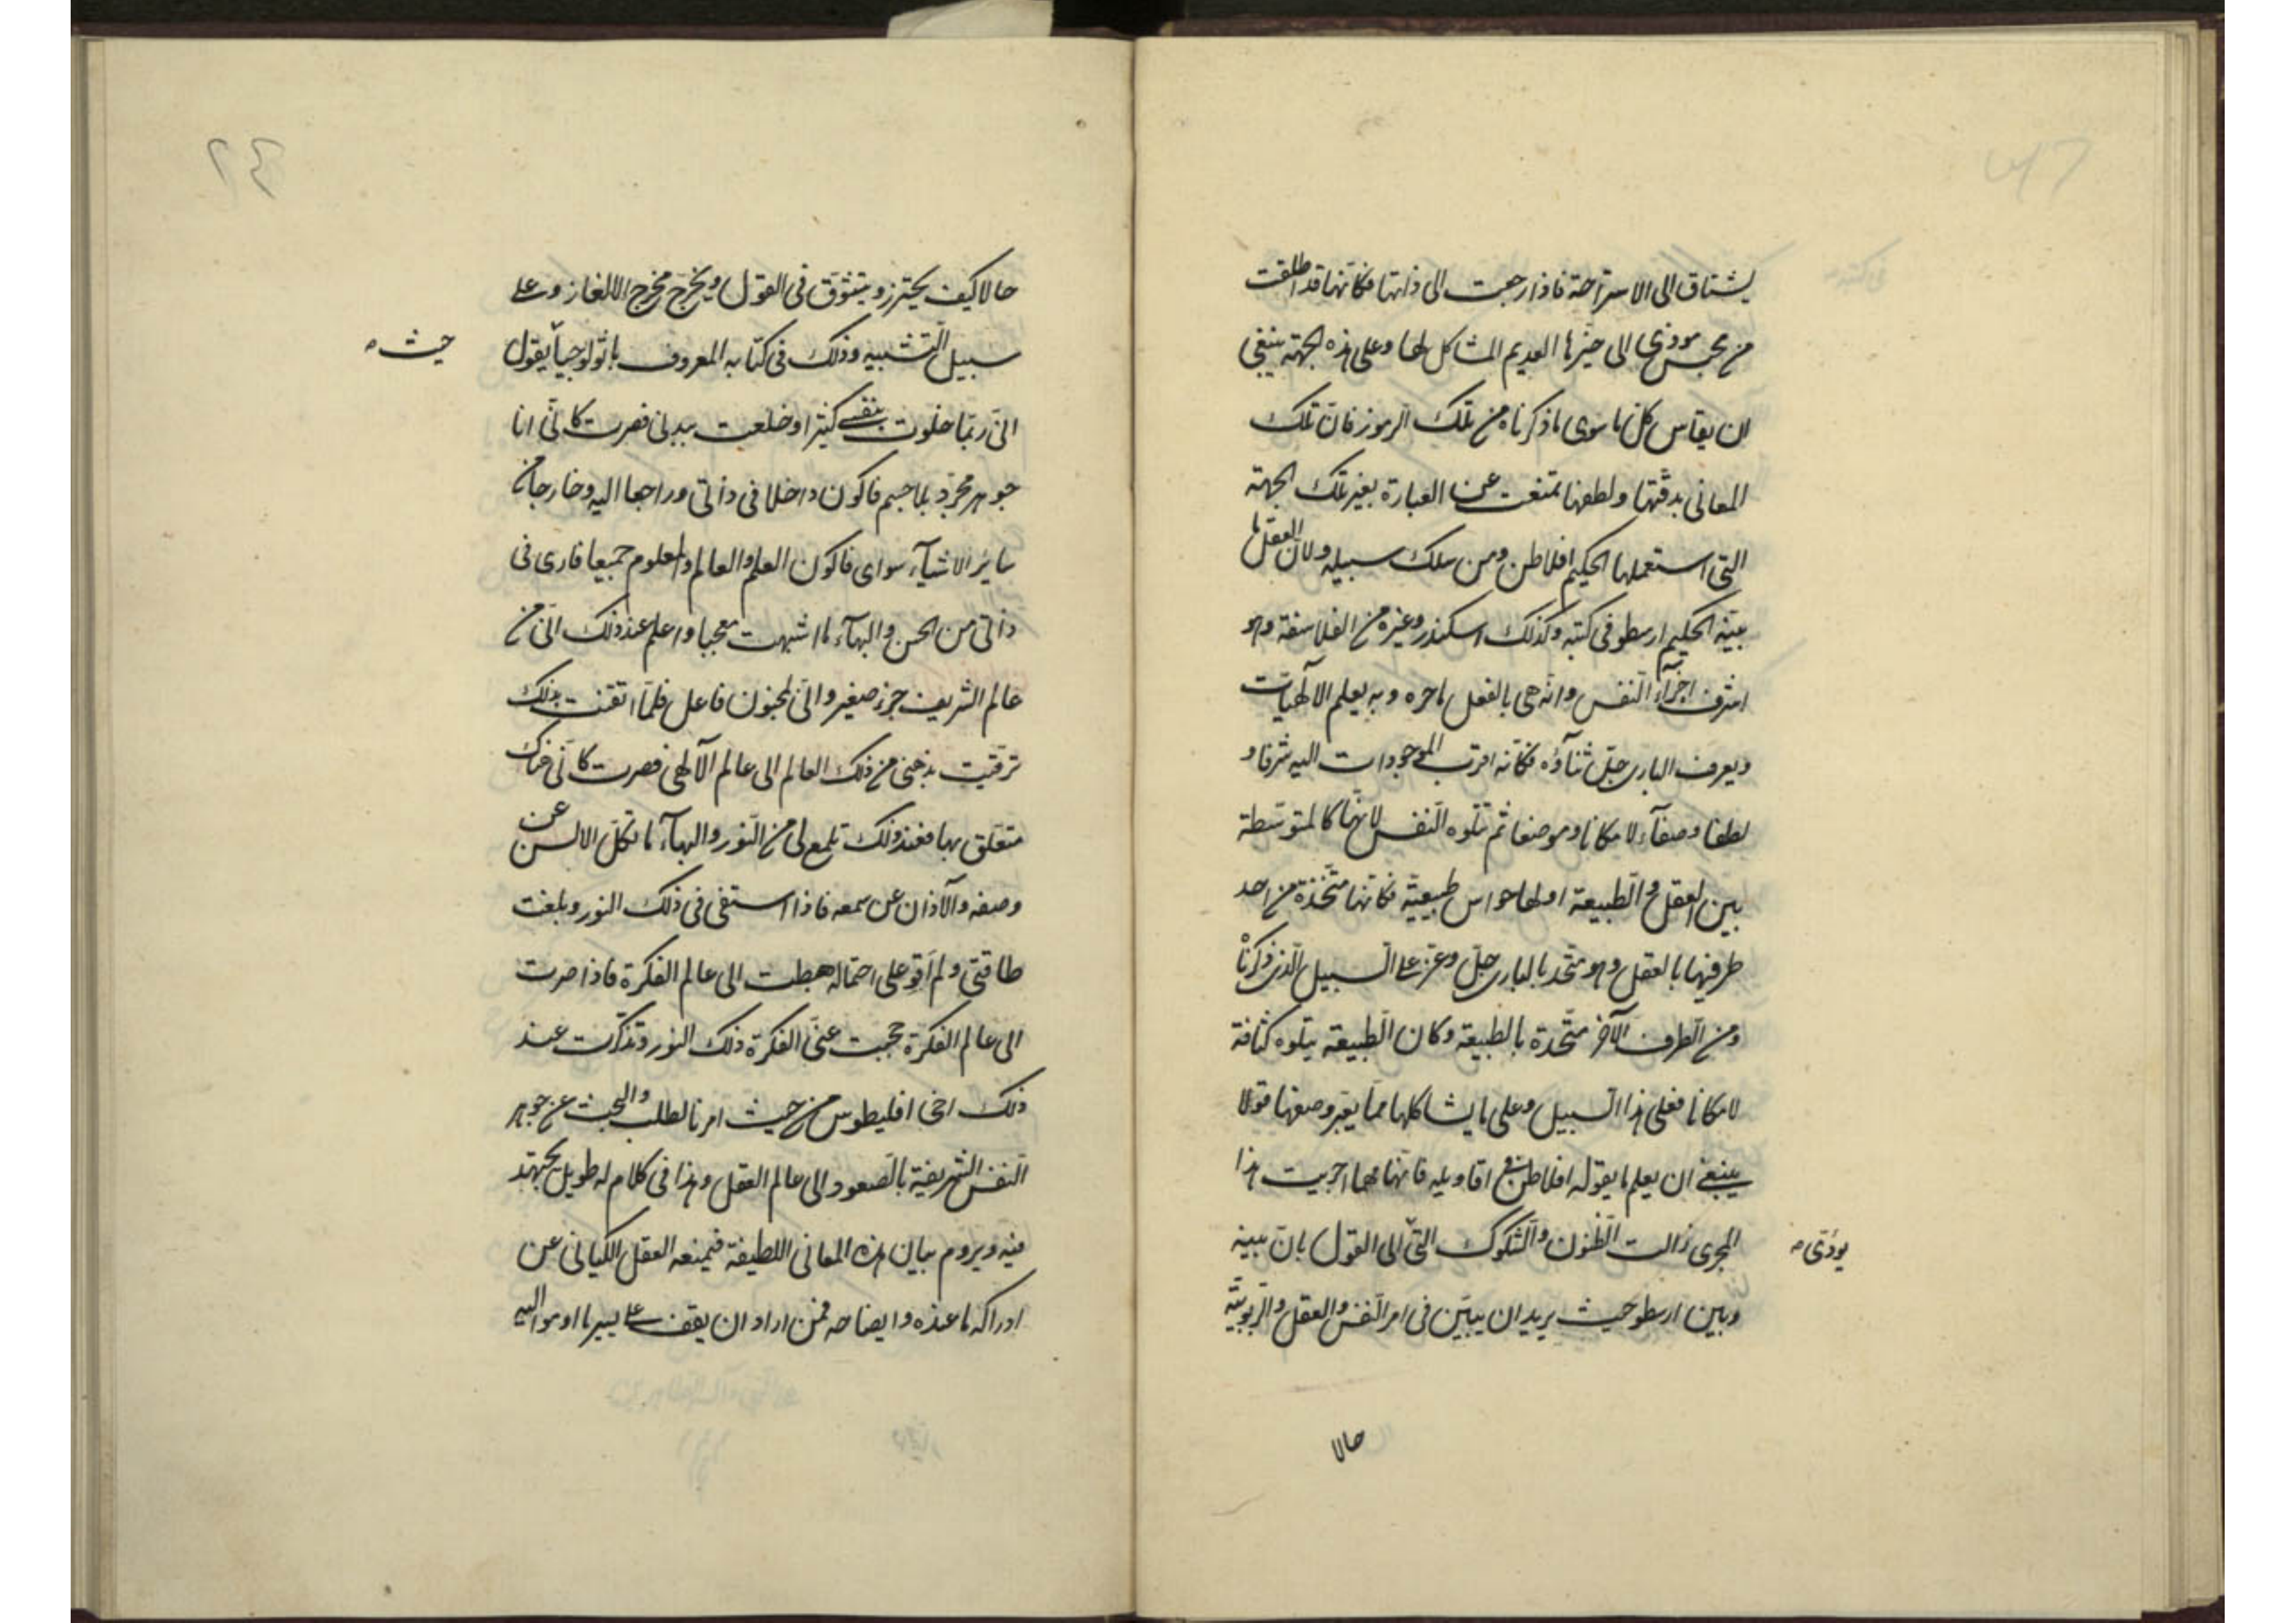 يشتاق الى الاستراحة فاذا رجعت الى ذاتها فكانها قد اطلقت
من محبس موذى الى حيزها القديم المشاكل لها وعلى هذه الجهة ينبغى
ان يقاس كل ما سوى ما ذكرناه من تلك الرموز فان تلك
المعانى بدقتها ولطفها تمنعت عن العبارة بغير تلك الجهة
التى استعملها الحكيم افلاطن ومن سلك سبيله ولان العقل ما
بينه الحكيم ارسطو فى كتبه وكذلك اسكندر وغيره من الفلاسفة وهو
اشرف اجزاء النفس وانه هى بالفعل ناجزه وبه يعلم الالهيات
ويعرف البارى جل ثناؤه فكانه اقرب الموجودات اليه شرفا و
لطفا وصفآء لا مكانا وموضعا ثم تتلوه النفس لانها كالمتوسطة
بين العقل والطبيعة اولها حواس طبيعية فكانها متحدة من احد
طرفيها بالعقل وهو متحد بالبارى جل وعز على السبيل الذى ذكرناه
ومن الطرف الآخر متحدة بالطبيعة وكان الطبيعة يتلوه كثافة
لا مكانا فعلى هذا السبيل وعلى ما يشاكلها مما يعبر وصفها قولا
ينبغى ان يعلم ما يقوله افلاطن فى اقاويله فانها مهما اجريت هذا
المجرى زالت الظنون والشكوك التى الى القول بان بينه
يودى
وبين ارسطو حيث يريد ان يبين فى امر النفس والعقل والربوبية
حالا
٢٤
حالا كيف يحترز ويتشوق فى القول ويخرج مخرج الالغاز وعلى
سبيل التشبيه وذلك فى كتابه المعروف باثولوجيا يقول
حيث
انى ربما خلوت بنفسى كثيرا وخلعت ببدنى فصرت كانى انا
جوهر مجرد بلا جسم فاكون داخلا فى ذاتى وراجعا اليه وخارجا من
سائر الاشيآء سواى فاكون العلم والعالم والمعلوم جميعا فارى فى
ذاتى من الحسن والبهآء ما اشبهت معجبا واعلم عند ذلك انى من
عالم الشريف جزء صغير وانى لمجنون فاعل فلما اتقنت بذلك
ترقيت بذهنى من ذلك العالم الى عالم الآلهى فصرت كانى هناك
متعلق بها فعند ذلك تلمع لى من النور والبهآء ما تكل الالسن عن
وصفه والآذان عن سمعه فاذا استغنى فى ذلك النور وبلغت
طاقتى ولم اقو على احتماله هبطت الى عالم الفكرة فاذا صرت
الى عالم الفكرة حجبت عنى الفكرة ذلك النور وتذكرت عند
ذلك اخى اقليطوس من حيث امرنا لطلب والبحث عن جوهر
النفس الشريفة بالصعود الى عالم العقل وهذا فى كلام له طويل يجتهد
فيه ويروم بيان هذه المعانى اللطيفة فيمنعه العقل الكيانى عن
ادراكه ما عنده وايضاحه فمن اراد ان يقف على يسير ما اومواليه